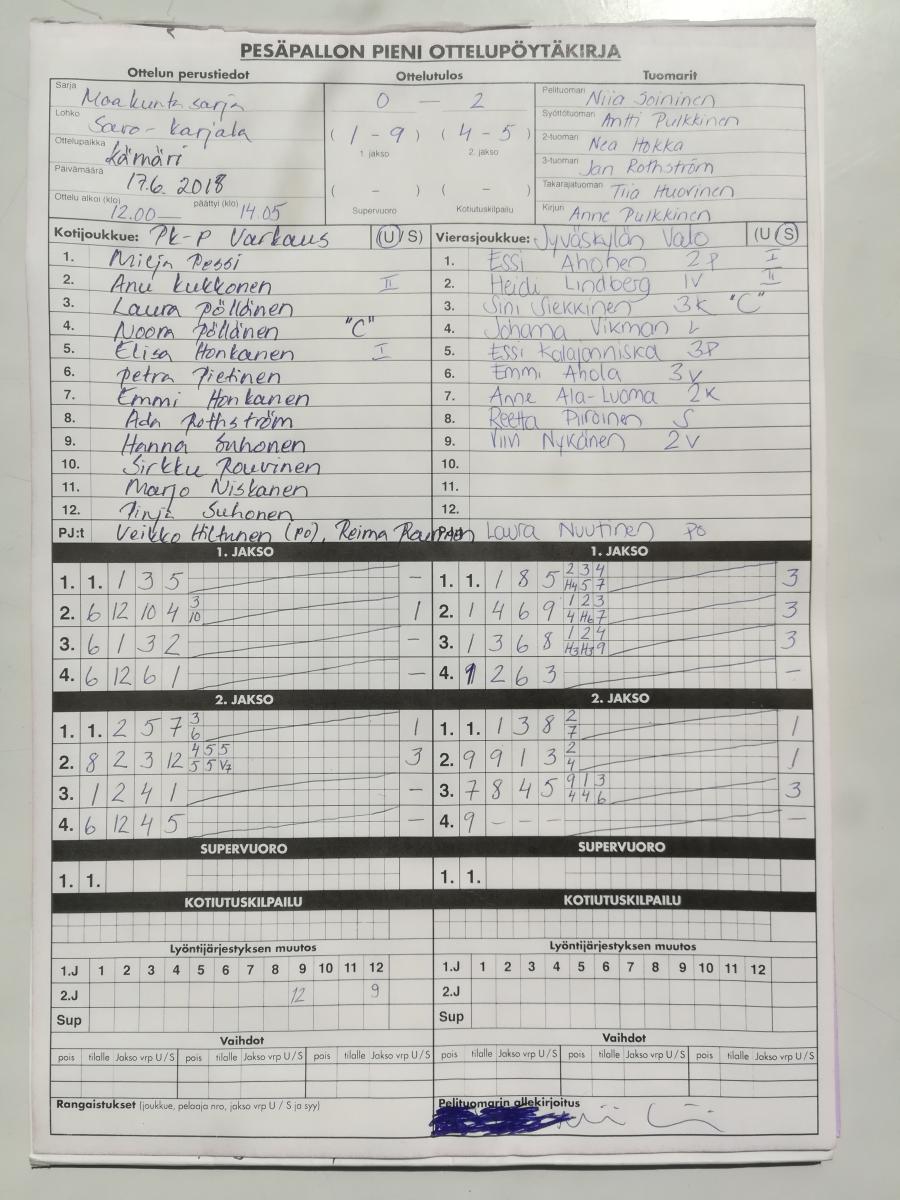 PESÄPALLON PIENI OTTELUPÖYTÄKIRJA
Ottelun perustiedot Ottelutulos Tuomarit
Sarja Maakuntasarja 0 — 2 Pelituomari Niia Soininen
Lohko Savo-Karjala Syöttötuomari Antti Pulkkinen
Ottelupaikka Kämäri (1-9) (4-5) 2-tuomari Nea Hokka
1 jakso 2. jakso 3-tuomari Jan Rothström
Päivämäärä 17.6. 2018 ( - ) ( - ) Takarajatuomari Tiia Huovinen
Ottelu alkoi (klo) 12.00 — päättyi (klo) 14.05 Supervuoro Kotiutuskilpailu Kirjuri Anne Pulkkinen
Kotijoukkue: PK-P Varkaus (U/S) Vierasjoukkue: Jyväskylän Valo (U/S)
1. Milja Pessi 1. Essi Ahonen 2P I
2. Anu Kukkonen II 2. Heidi Lindberg 1V II
3. Laura Pöllänen 3. Sini Siekkinen 3K "C"
4. Noora Pöllänen "C" 4. Johanna Vikman L
5. Elisa Honkanen I 5. Essi Kalajanniska 3P
6. Petra Pietinen 6. Emmi Ahola 3V
7. Emmi Honkanen 7. Anne Ala-Luoma 2K
8. Ada Rothström 8. Reetta Piiroinen S
9. Hanna Suhonen 9. Viivi Nykänen 2V
10. Sirkku Rouvinen 10.
11. Marjo Niskanen 11.
12. Pinja Suhonen 12.
PJ:t Veikko Hiltunen (po), Reima Laura Nuutinen po
1. JAKSO 1. JAKSO
1. 1. 1 3 5 — 1. 1. 1 8 5 2 3 4 H4 5 7 3
2. 6 12 10 4 3 10 1 2. 1 4 6 9 1 2 3 4 H6 7 3
3. 6 1 3 2 — 3. 1 3 6 8 1 2 4 H3 H3 9 3
4. 6 12 6 1 — 4. 1 2 6 3 —
2. JAKSO 2. JAKSO
1. 1. 2 5 7 3 6 1 1. 1. 1 3 8 2 7 1
2. 8 2 3 12 4 5 5 5 5 V7 3 2. 9 9 1 3 2 4 1
3. 1 2 4 1 — 3. 7 8 4 5 9 1 3 4 4 6 3
4. 6 12 4 5 — 4. 9 - - - —
SUPERVUORO SUPERVUORO
1. 1. 1. 1.
KOTIUTUSKILPAILU KOTIUTUSKILPAILU
Lyöntijärjestyksen muutos Lyöntijärjestyksen muutos
1.J 1 2 3 4 5 6 7 8 9 10 11 12 1.J 1 2 3 4 5 6 7 8 9 10 11 12
2.J 12 9 2.J
Sup Sup
Vaihdot Vaihdot
pois tilalle Jakso vrp U / S pois tilalle Jakso vrp U / S pois tilalle Jakso vrp U / S pois tilalle Jakso vrp U / S pois tilalle Jakso vrp U / S pois tilalle Jakso vrp U / S
Rangaistukset (joukkue, pelaaja nro, jakso vrp U / S ja syy) Pelituomarin allekirjoitus